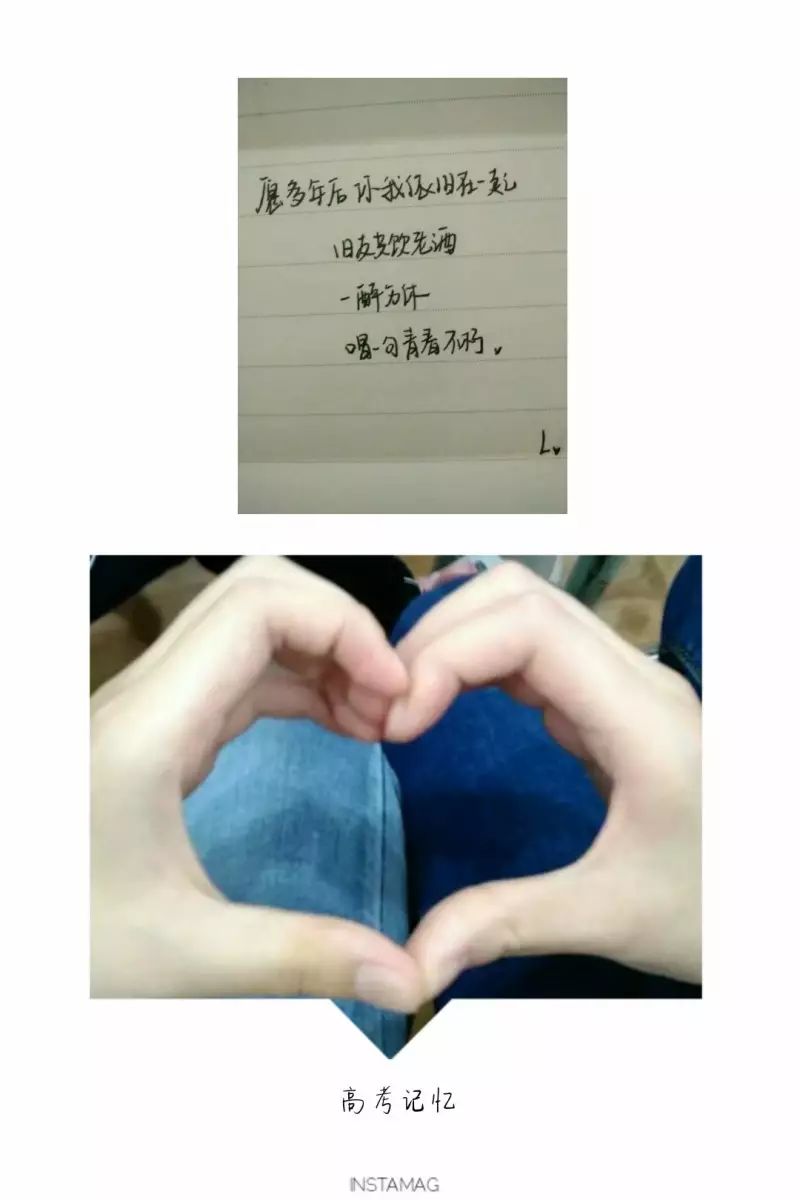 愿多年后你我依旧在一起
旧友共饮老酒
一醉方休
唱一句青春不朽。
L
高考记忆
INSTAMAG